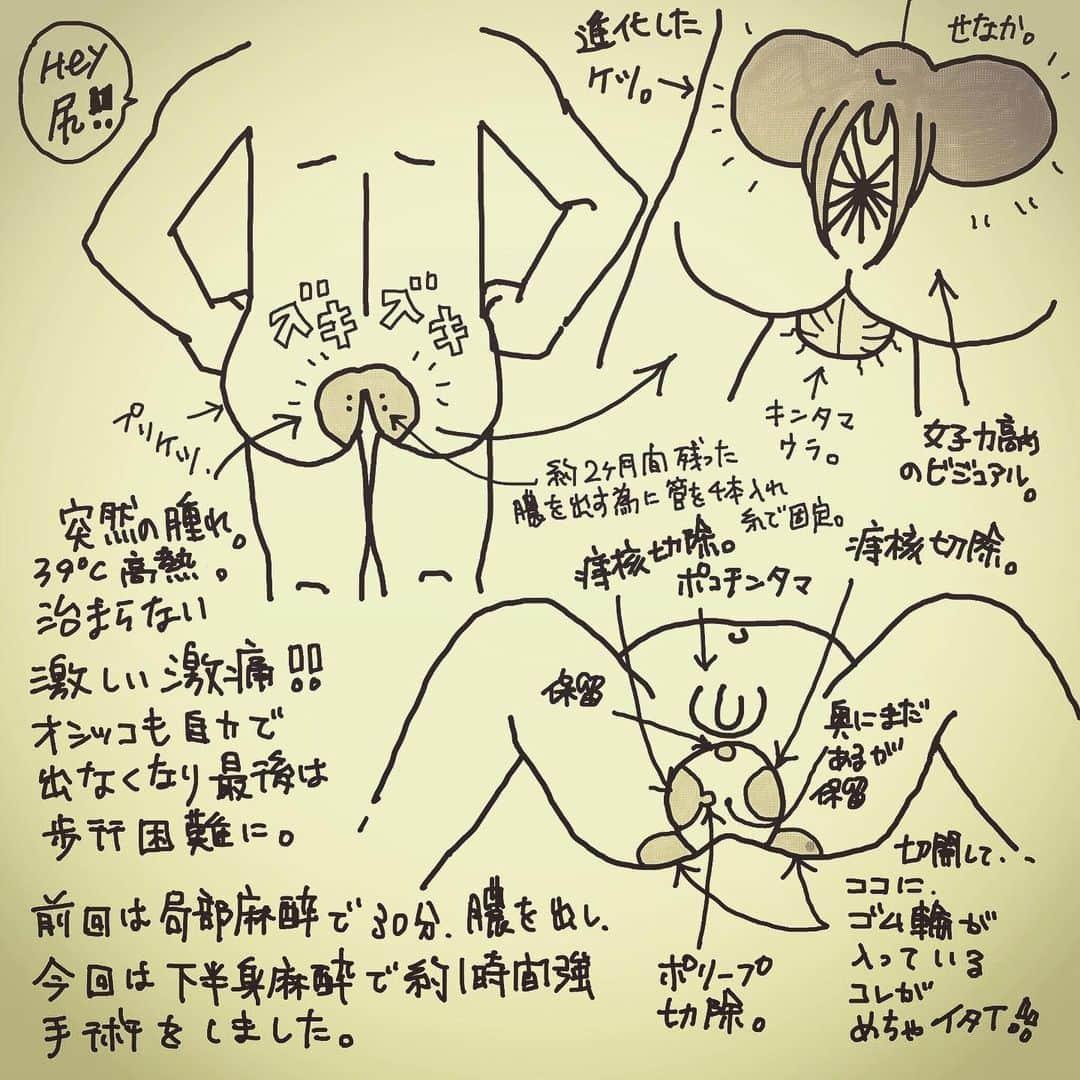 Hey
尻!!
進化した
ケツ。
せなか。
ズキ ズキ
プリケツ.
キンタマ
ウラ。
女子力高め
のビジュアル。
約2ヶ月間残った
膿を出す為に管を4本入れ
糸で固定。
突然の腫れ。
39℃高熱。
治まらない
激しい激痛!!
オシッコも自力で
出なくなり最後は
歩行困難に。
痔核切除。
ポコチンタマ
痔核切除。
保留
奥にまだ
あるが
保留
切開して、、
ココに.
ゴム輪が
入っている
コレが
めちゃイタイ!!
ポリープ
切除。
前回は局部麻酔で30分.膿を出し.
今回は下半身麻酔で約1時間強
手術をしました。